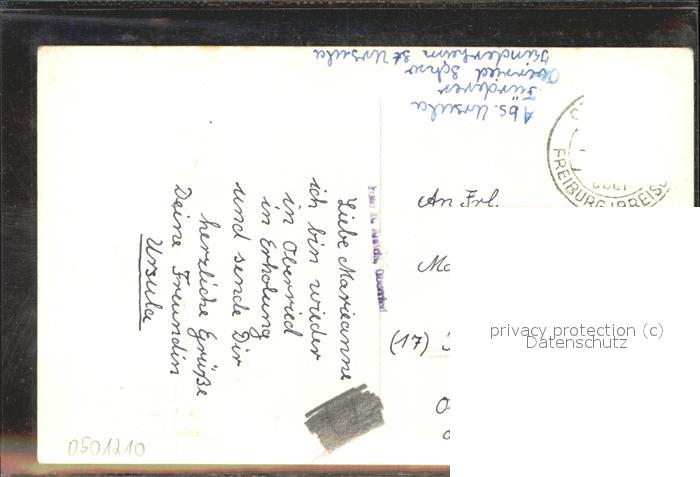 Abs. Ursula
Oberried
Kinderheim St Ursula
FREIBURG (BREISG
Liebe Marieanne
ich bin wieder
in Oberried
in Erholung
und sende Dir
herzliche Grüße
Deine Freundin
Ursula
An Frl.
(17)
privacy protection (c)
Datenschutz
0501210